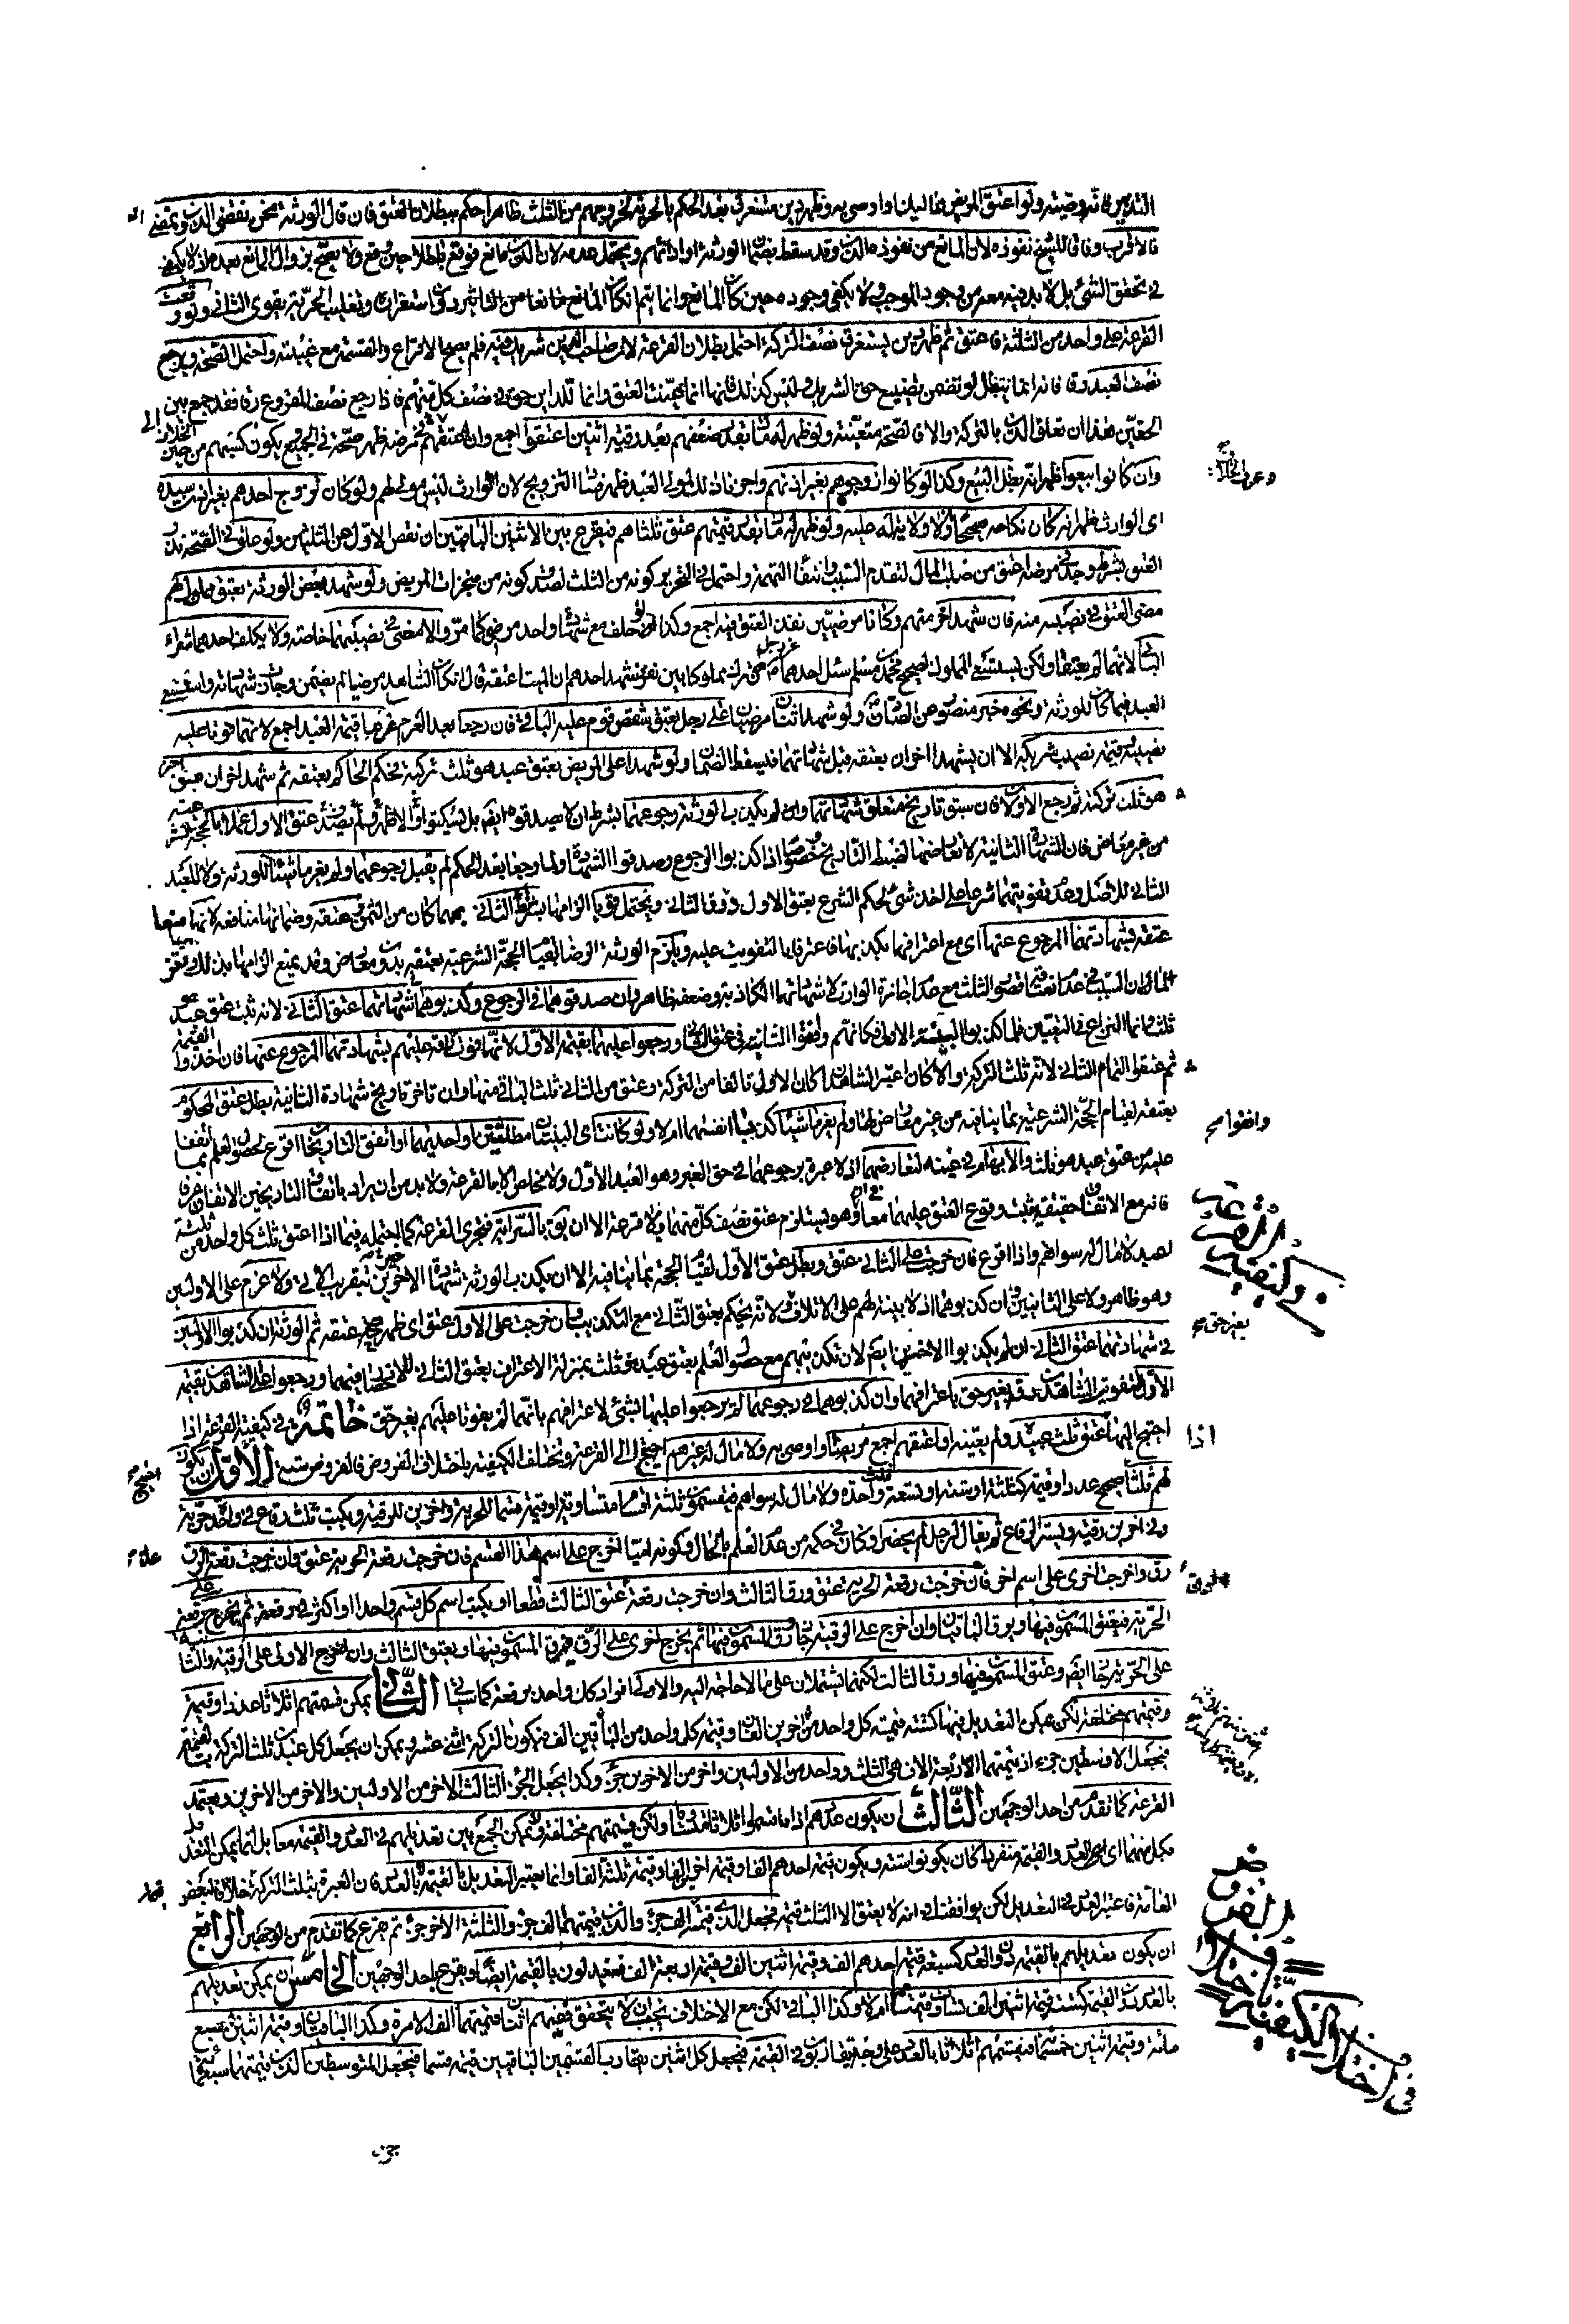 التدبير فانه وصيته ولو اعتق المريض مماليك او اوصى به وظهر دين مستغرق بعد الحكم بالحرية لخروجهم من الثلث ظاهرا حكم ببطلان العتق فان قال الورثة نحن نقضى الدين ونمضى
فالاقرب وفاقا للشيخ نفوذه لان المانع من نفوذه الدين وقد سقط بضمان الورثة او ادائهم ويحتمل عدمه لان الدين مانع فوقع باطلا حين وقع ولا يصح بزوال المانع بعده اذ لا يكفى
في تحقق الشئ بل لابد فيه معه من وجود الموجب ولا يكفى وجوده حين كان المانع وانما يتم ان كان المانع مانعا من التاثير دون استقراره وتغليب الحرية يقوى الثانى ولو وقعت
القرعة على واحد من الثلثة فاعتق ثم ظهر دين يستغرق نصف التركة احتمل بطلان القرعة لان صاحب الدين شريك فيه فلم يصح الاقراع والقسمة مع غيبته واحتمل الصحة ويرجع
نصف العبد رقا فانه انما يبطل لو تضمن تضييع حق الشريك وليس كذلك فانها انما عينت العتق وانما للداين حق في نصف كل منهم فاذا رجع نصف المقروع رقا فقد جمع بين
الحقين هذا ان تعلق الدين بالتركة والا فالصحة متعينة ولو ظهر له مال بقدر ضعفهم بعد رقية اثنين اعتقوا اجمع وان اعتقهم في مرضه ظهر صحته في الجميع يكون كسبهم من حين
وان كانوا بيعوا ظهر انه بطل البيع وكذا لو كانوا زوجوهم بغير اذنهم واجر ناذلك لمولى العبد ظهر فساد التزويج لان الوارث ليس مولى لهم ولو كان تزوج احدهم بغير اذن سيده
اى الوارث ظهر انه كان نكاحه صحيحا ولا ولاية له عليه ولو ظهر له مال بقدر قيمتهم عتق ثلثاهم فيقرع بين الاثنين الباقيين ان نقص الاول عن الثلثين ولو علق في الصحة نذر
العتق بشرط وجد في مرضه اعتق من صلب المال لتقدم السبب وانتفاء التهمة واحتمل في التحرير كونه من الثلث لصدق كونه من منجزات المريض ولو شهد بعض الورثة بعتق مملوك لهم
مضى العتق في نصيبه منه فان شهد اخر منهم وكانا مرضيين نفذ العتق فيه اجمع وكذا لو حلف مع شهادة واحد مرضي كما مر والا مضى في نصيبهما خاصة ولا يكلف احدهما شراء
الباقى لانهما لم يعتقا ولكن يستسعى المملوك لصحيح محمد بن مسلم سئل احدهما عن رجل ترك مملوكا بين نفر فشهد احدهم ان الميت اعتقه قال ان كان الشاهد مرضيا لم يضمن وجازت شهادته واستسعى
العبد فيما كان للورثة ونحوه خبر منصور عن الصادق ولو شهد اثنان مرضيان على رجل بعتق شقص قوم عليه الباقى فان رجعا بعد الغرم غرما قيمة العبد اجمع لانهما فوتا عليه
نصيبه وقيمة نصيب شريكه الا ان يشهد اخران بعتقه قبل شهادتهما فيسقط الضمان ولو شهدا على المريض بعتق عبد هو ثلث تركته فحكم الحاكم بعتقه ثم شهد اخران بعتق اخر
هو ثلث تركته ثم رجع الاولان فان سبق تاريخ متعلق شهادتهما ولم يكذب الورثة رجوعهما بشرط ان لا يصدقوه ايضا بل يسكتوا او لا اظهر ولم يصدق عتق الاول عملا بالحجة
من غير معارض فان الشهادة الثانية لا تعارضها لضبط التاريخ خصوصا اذا كذبوا الرجوع وصدقوا الشهادة ولما رجعا بعد الحكم لم يقبل رجوعهما ولم يغرما شيئا للورثة ولا للعبد
الثانى للاصل وعدم تفويتهما شرعا على احد شئ لحكم الشرع بعتق الاول ورق الثانى ويحتمل قويا الزامهما بشراء الثانى بمهما كان من الثمن وعتقه وضمانهما منافعه لانهما منعا
عتقه بشهادتهما المرجوع عنها اى مع اعترافهما بكذبهما فاعترفا بالتفويت عليه ويلزم الورثة الرضا لقيام الحجة الشرعية بعتقه بدون معارض وقد يمنع الزامهما بذلك وتغريمهما
المال لان السبب في عدم نفوذ عتقه قصور الثلث مع عدم اجازة الوارث لا شهادتهما الكاذبة وضعفه ظاهر وان صدقوهما في الرجوع وكذبوهما في شهادتهما عتق الثانى لانه ثبت عتق عبد هو
ثلث وانما النزاع في التعيين فلما كذبوا البينة الاولى فكانهم وافقوا الثانية في عتق الثانى ورجعوا عليهما بقيمة الاول لانهما فوتا رقه عليهم بشهادتهما المرجوع عنها فان اخذوا القيمة
ثم عتقوا التمام الثانى لانه ثلث التركة والا كان اعسر الشاهدان كان الاول تالفا من التركة وعتق من الثانى ثلث الباقى منها وان تاخر تاريخ شهادة الثانية بطل عتق المحكوم
بعتقه لقيام الحجة الشرعية بما ينافيه من غير معارض لها ولم يغرما شيئا كذبا انفسهما ام لا ولو كانتا اى البينتان مطلقتين او احديهما او اتفق التاريخان اقرع لحصول العلم بما اتفقا
عليه من عتق عبد هو ثلث والابهام في عينه لتعارضهما اذ لا عبرة برجوعهما في حق الغير وهو العبد الاول ولا مخلص الا بالقرعة ولابد من ان يراد باتفاق التاريخين الاتفاق عرفا
فانه مع الاتفاق حقيقة يثبت وقوع العتق عليهما معا وهو يستلزم عتق نصف كل منهما ولا قرعة الا ان يق بالسراية فتجرى القرعة كما يحتمله فيما اذا اعتق ثلث كل واحد من ثلثة
لعبيد لا مال له سواهم واذا اقرع فان خرجت على الثانى عتق وبطل عتق الاول لقيام الحجة بما ينافيه الا ان يكذب الورثة شهادة الاخرين ولا غرم على الاولين
وهو ظاهر ولا على الثانيين وان كذبوهما اذ لا بينة لهم على الاتلاف ولانه يحكم بعتق الثانى مع التكذيب وان خرجت على الاول عتق اى ظهر صحة عتقه ثم الورثة ان كذبوا الاولين
في شهادتهما عتق الثانى ان لم يكذبوا الاخرين ايضا لان تكذيبهم مع حصول العلم بعتق عبد هو ثلث بمنزلة الاعتراف بعتق الثانى فيهما ورجعوا على الشاهدين بقيمة
الاول لتفويت الشاهدين رقه بغير حق باعترافهما وان كذبوهما في رجوعهما لم يرجعوا عليهما بشئ لاعترافهم بانهما لم يفوتا عليهم بغير حق خاتمة في كيفية القرعة اذا
احتيج اليها اعتق ثلث عبيده ولم يعينه او اعتقهم اجمع مريضا او اوصى به ولا مال له غيرهم احتيج الى القرعة وتختلف الكيفية باختلاف الفروض فالفروض ستة الاول ان يكون
لهم ثلث صحيح عددا وقيمة كثلثة او ستة او تسعة قيمتهم واحدة ولا مال له سواهم فيقسمون ثلثة اقسام متساوية او قيمة قسما للحرية واخرين للرقية ويكتب ثلث رقاع في واحدة حرية
وفي اخرين رقية ويستر الرقاع ثم يقال لرجل لم يحضر او كان في حكمه من عدم العلم بالحال ككونه اميا اخرج على اسم هذا القسم فان خرجت رقعة الحرية عتق وان خرجت رقعة الرق
رق واخرجت اخرى على اسم اخر فان خرجت رقعة الحرية عتق ورق الثالث وان خرجت رقعة عتق الثالث قطعا او يكتب اسم كل قسم واحدا او اكثر في رقعة ثم يخرج رقعة على
الحرية فيعتق المسمون فيها ويرق الباقيان وان اخرج على الرقية جاز ورق المسمون فيها ثم يخرج اخرى على الرق فيرق المسمون فيها ويعتق الثالث وان اخرج الاولى على الرقية والثانية
على الحرية جاز ايضا وعتق المسمون فيها ورق الثالث لكنهما يشتملان على ما لا حاجة اليه والاولى افراد كل واحد برقعة كما سياتى الثانى يمكن قسمتهم اثلاثا عددا وقيمة
وقيمتهم مختلفة لكن يمكن التعديل فيها كستة قيمة كل واحد من اخرين الفان وقيمة كل واحد من الباقين الف فيكون التركة اثنى عشر ويمكن ان يجعل كل عبدين ثلث التركة بالقيمة
فيجعل الاوسطين جزء اذ قيمتهما الاربعة الاف هى الثلث وواحد من الاولين واخر من الاخرين جزء وكذا يجعل الجزء الثالث الاخر من الاولين والاخر من الاخرين ويعتمد
القرعة كما تقدم من احد الوجهين الثالث ان يكون عددهم اذا قسموا اثلاثا متساويا ولكن قيمتهم مختلفة ولا يمكن الجمع بين تعديلهم في العدد والقيمة معا بل انما يمكن التعديل
بكل منهما اى العدد والقيمة منفردا كان يكونوا ستة ويكون قيمة احدهم الفا وقيمة اخرين الفا وقيمة ثلثة الفا وانما يعتبر التعديل بالقيمة لا بالعدد فان العبرة بثلث التركة خلافا لبعض
العامة فاعتبر العدد في التعديل لكن يوافقنا في انه لا يعتق الا الثلث قيمة فيجعل الذى قيمته الف جزء والذين قيمتهما الف جزء والثلثة الاخر جزء ثم يقرع كما تقدم من الوجهين الرابع
ان يكون تعديلهم بالقيمة دون العدد كسبعة قيمة احدهم الف وقيمة اثنين الف وقيمة اربعة الف فيعدلون بالقيمة ايضا ويقرع باحد الوجهين الخامس ان يمكن تعديلهم
بالعدد دون القيمة كستة قيمة اثنين الف تساوت قيمتهما ام لا وكذا الباقى لكن مع الاختلاف يجب ان لا يتحقق فيهم اثنان قيمتهما الف الا مرة وكذا الباقيان وقيمة اثنين سبع
مائة وقيمة اثنين خمسمائة فيقسمهم اثلاثا بالعدد على وجه يتقاربون في القيمة فيجعل كل اثنين يتقارب القسمين الباقيين قيمة قسما فيجعل المتوسطين الذين قيمتهما سبعمائة
جزء
وكيفية القرعة
في اختلاف الكيفية باختلاف الفروض